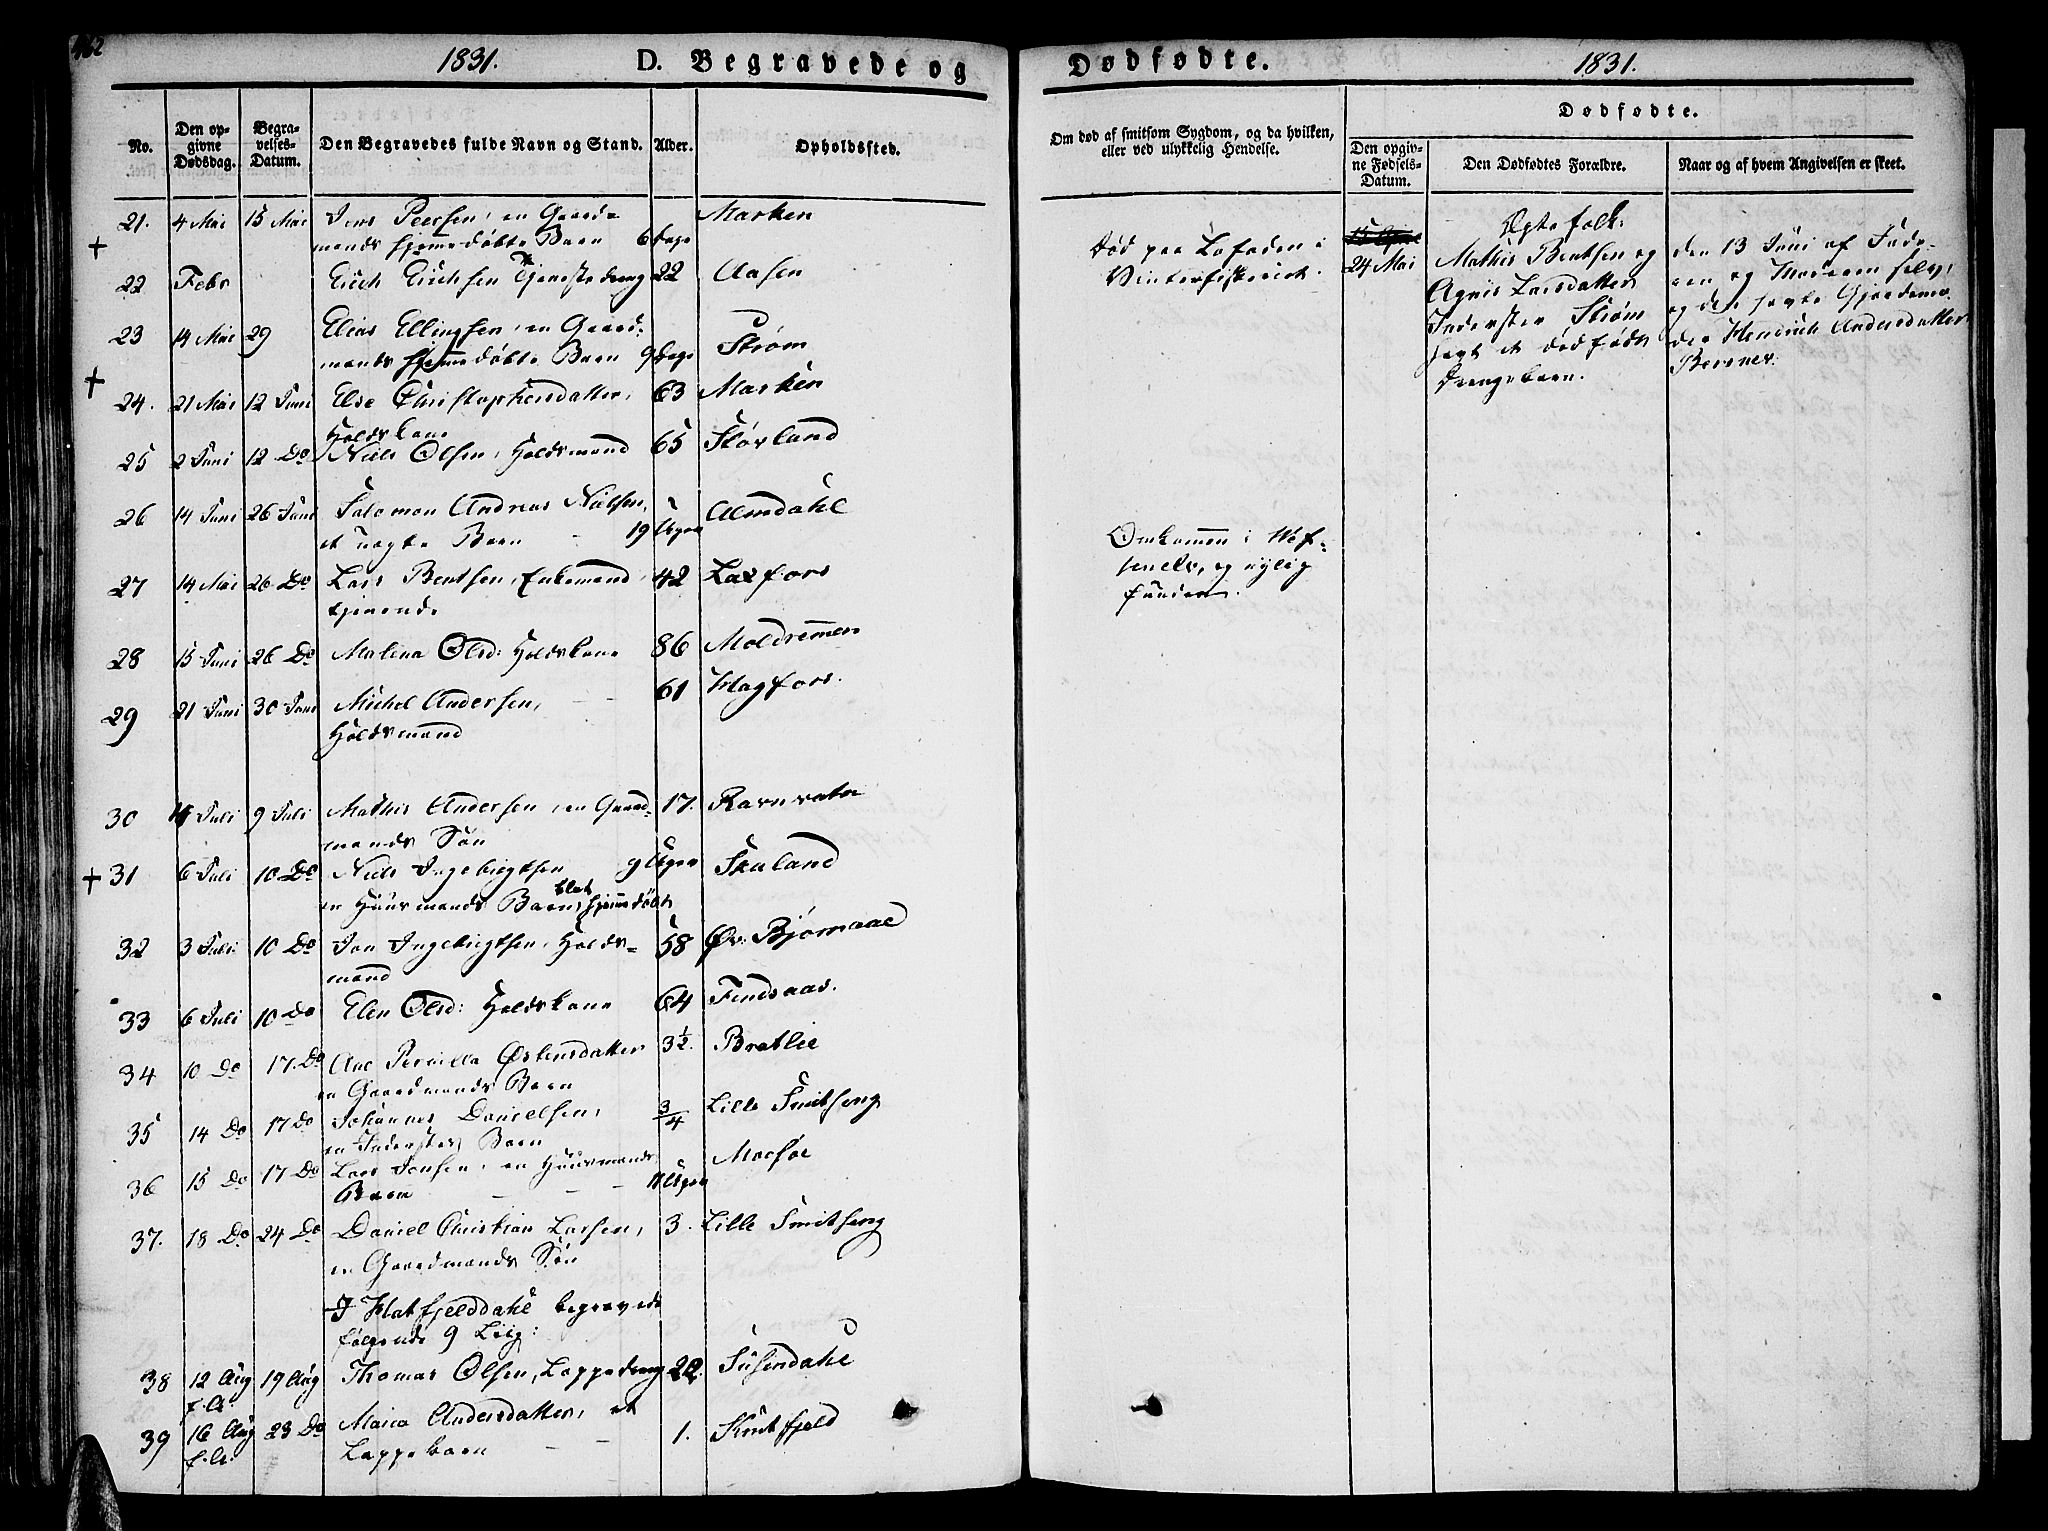 1831. D. Begravede og
No. Den opgivne Dødsdag. Begravelses-Datum. Den Begravedes fulde Navn og Stand. Alder. Opholdssted.
21. 4 Mai 15 Mai Jens Peersen, en Gaard- Marken
mands hjemmedøbte Barn 6 Dage
22 Febr Erich Erichsen Tjenestedreng 22 Aasen
23 14 Mai 29 Elias Ellingsen, en Gaard-
mands hjemmedøbte Barn 9 Dage Strøm
24. 21 Mai 12 Juni Else Christophersdatter, 63 Marken
Holdskone
25 2 Juni 12 Do Niels Olsen, Holdsmand 65
26 14 Juni 26 Juni Salomon Andreas Nielsen, Almdahl
et uægte Barn 19 Uger
27 14 Mai 26 Do Lars Bentsen, Enkemand, 42 Laxfors
tjenende
28 15 Juni 26 Do Malena Olsd: Holdskone 86 Moldremmen
29 21 Juni 30 Juni Michel Andersen, 61 Hagfors.
Holdsmand
30 Juli 9 Juli Mathis Andersen, en Gaard- 17. Ravnvatn
mands Søn
31 6 Juli 10 Do Niels Ingebrigtsen 9 Uger Skuland
en Huusmands Barn, blot hjemmedøbt
32 3 Juli 10 Do Jon Ingebrigtsen, Holds- 58 Øv: Bjørnaae
mand
33 6 Juli 10 Do Elen Olsd: Holdskone 64 Findsaas.
34 10 Do 17. Do Ane Pernilla Østensdatter 3½. Bratlie
en Gaardmands Barn
35 14 Do 17 Do Johannes Danielsen, 3/4 Lille Smitseng
en Inderstes Barn
36 15 Do 17 Do Lars Jonsen, en Huusmands Mosføe
Barn 11 Uger
37. 18 Do 24 Do Daniel Christian Larsen, 3. Lille Smitseng
en Gaardmands Søn
I Hatfjelddahl begravede
følgende 9 Liig:
38 12 Aug 19 Aug Thomas Olsen, Lappedreng 22. Susendahl
f.A.
39 16 Aug 23 Do Maria Andersdatter, et 1. Knutfjeld
f.A. Lappebarn
Dødfødte. 1831.
Om død af smitsom Sygdom, og da hvilken, eller ved ulykkelig Hendelse.
Dødfødte.
Den opgivne Fødsels-Datum. Den Dødfødtes Forældre. Naar og af hvem Angivelsen er skeet.
Død paa Lofoden i
Vinterfiskeriet.
Omkommen i Vef-
senelv, og nylig
funden.
24 Mai
Ægtefolk:
Mathis Bentsen og
Agnis Larsdatter
Inderster Strøm
havt et dødfødt
Drengebarn.
den 13 Juni af Fade-
ren og Moderen selv,
og den havte Gjordemo-
der Henrich Andersdatter